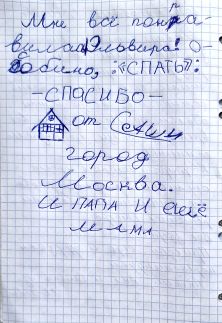 Мне всё понра-
вилаЭльвира! О-
собино, :«СПАТЬ»:
-СПАСИБО-
от Саши
город
Москва.
И ПАПА И ещё
МАМА